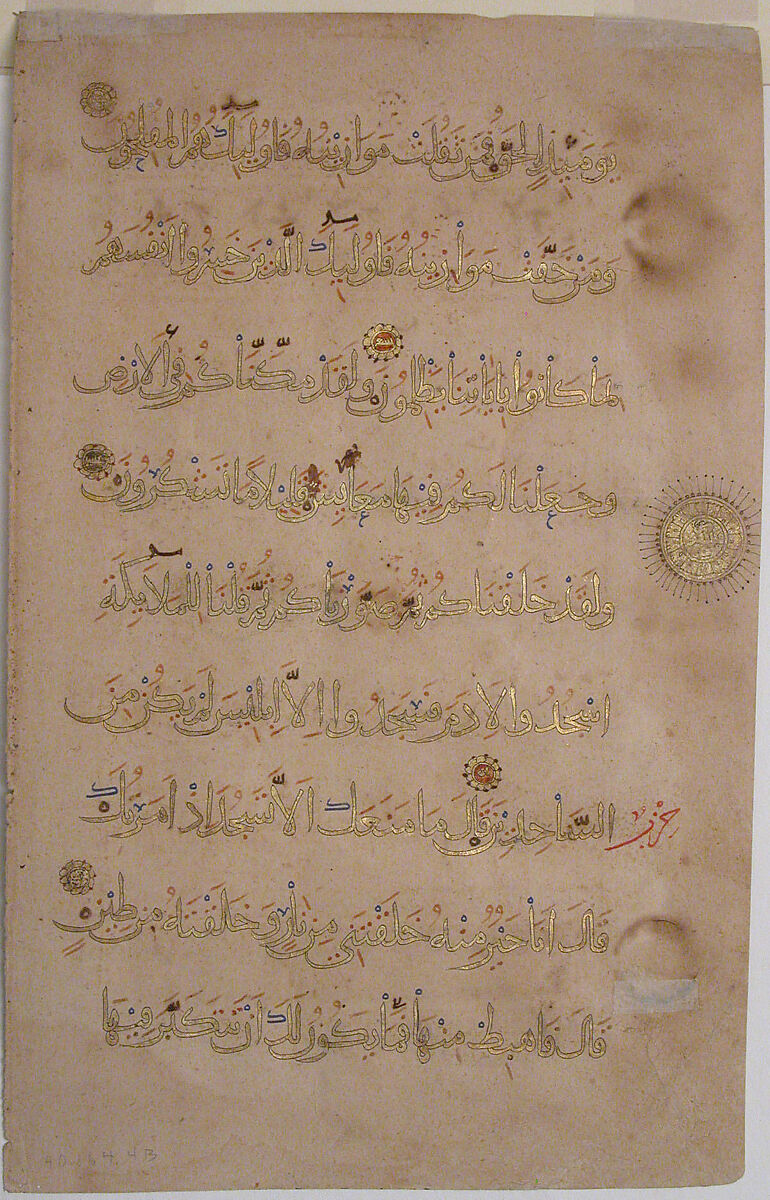 يَوْمَئِذٍ الْحَقُّ فَمَن ثَقُلَتْ مَوَازِينُهُ فَأُولَٰئِكَ هُمُ الْمُفْلِحُونَ
وَمَنْ خَفَّتْ مَوَازِينُهُ فَأُولَٰئِكَ الَّذِينَ خَسِرُوا أَنفُسَهُم
بِمَا كَانُوا بِآيَاتِنَا يَظْلِمُونَ وَلَقَدْ مَكَّنَّاكُمْ فِي الْأَرْضِ
وَجَعَلْنَا لَكُمْ فِيهَا مَعَايِشَ قَلِيلًا مَا تَشْكُرُونَ
وَلَقَدْ خَلَقْنَاكُمْ ثُمَّ صَوَّرْنَاكُمْ ثُمَّ قُلْنَا لِلْمَلَائِكَةِ
اسْجُدُوا لِآدَمَ فَسَجَدُوا إِلَّا إِبْلِيسَ لَمْ يَكُن مِنَ
السَّاجِدِينَ قَالَ مَا مَنَعَكَ أَلَّا تَسْجُدَ إِذْ أَمَرْتُكَ
حزب
قَالَ أَنَا خَيْرٌ مِنْهُ خَلَقْتَنِي مِن نَارٍ وَخَلَقْتَهُ مِن طِينٍ
قَالَ فَاهْبِطْ مِنْهَا فَمَا يَكُونُ لَكَ أَن تَتَكَبَّرَ فِيهَا